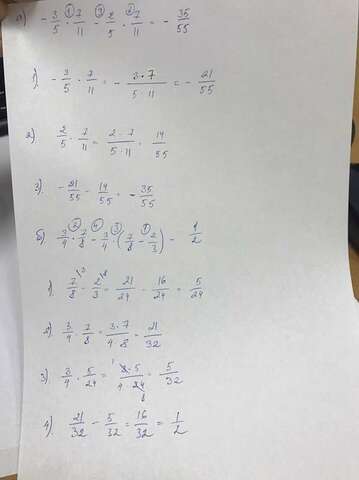 а) - 3/5 ·① 7/11 -③ 2/5 ·② 7/11 = - 35/55
1). - 3/5 · 7/11 = - 3·7/5·11 = - 21/55
2). 2/5 · 7/11 = 2·7/5·11 = 14/55
3). - 21/55 - 14/55 = - 35/55
б) 3/4 ·② 7/8 -④ 3/4 ·③ (7/8 -① 2/3) = 1/2
1). 7/8 \3 - 2/3 \8 = 21/24 - 16/24 = 5/24
2) 3/4 · 7/8 = 3·7/4·8 = 21/32
3) 3/4 · 5/24 = 1 3·5/4·24 8 = 5/32
4). 21/32 - 5/32 = 16/32 = 1/2